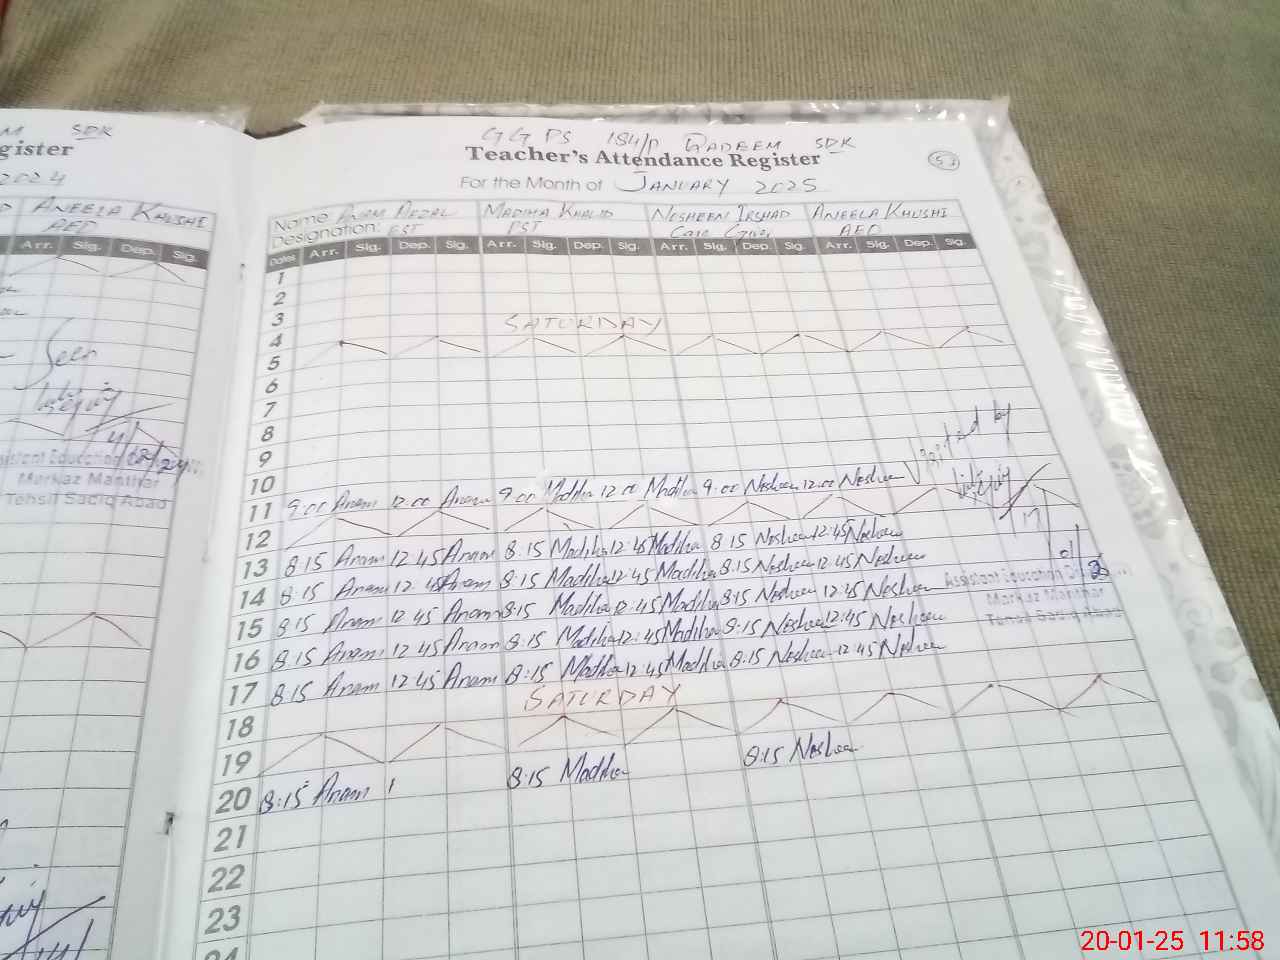 SDK
gister
2024
ANEELA KHUSHI
AEO
Arr. Sig. Dep. Sig.
Seen
Markaz Manthar
Tehsil Sadiq Abad
GGPS 184/P QADEEM SDK
Teacher's Attendance Register
For the Month of JANUARY 2025
Name ANAM AFZAL MADIHA KHALID NOSHEEN IRSHAD ANEELA KHUSHI
Designation: EST PST Care Giver AEO
Dates Arr. Sig. Dep. Sig. Arr. Sig. Dep. Sig. Arr. Sig. Dep. Sig. Arr. Sig. Dep. Sig.
1
2
3
4 SATURDAY
5
6
7
8
9
10
11 9:00 Anam 12:00 Anam 9:00 Madiha 12:00 Madiha 9:00 Nosheen 12:00 Nosheen Visited by
12
13 8:15 Anam 12:45 Anam 8:15 Madiha 12:45 Madiha 8:15 Nosheen 12:45 Nosheen
14 8:15 Anam 12:45 Anam 8:15 Madiha 12:45 Madiha 8:15 Nosheen 12:45 Nosheen
15 8:15 Anam 12:45 Anam 8:15 Madiha 12:45 Madiha 8:15 Nosheen 12:45 Nosheen
16 8:15 Anam 12:45 Anam 8:15 Madiha 12:45 Madiha 8:15 Nosheen 12:45 Nosheen
17 8:15 Anam 12:45 Anam 8:15 Madiha 12:45 Madiha 8:15 Nosheen 12:45 Nosheen
Assistant Education
Markaz Manthar
Tehsil Sadiq Abad
18 SATURDAY
19
20 8:15 Anam 8:15 Madiha 8:15 Nosheen
21
22
23
24
20-01-25 11:58